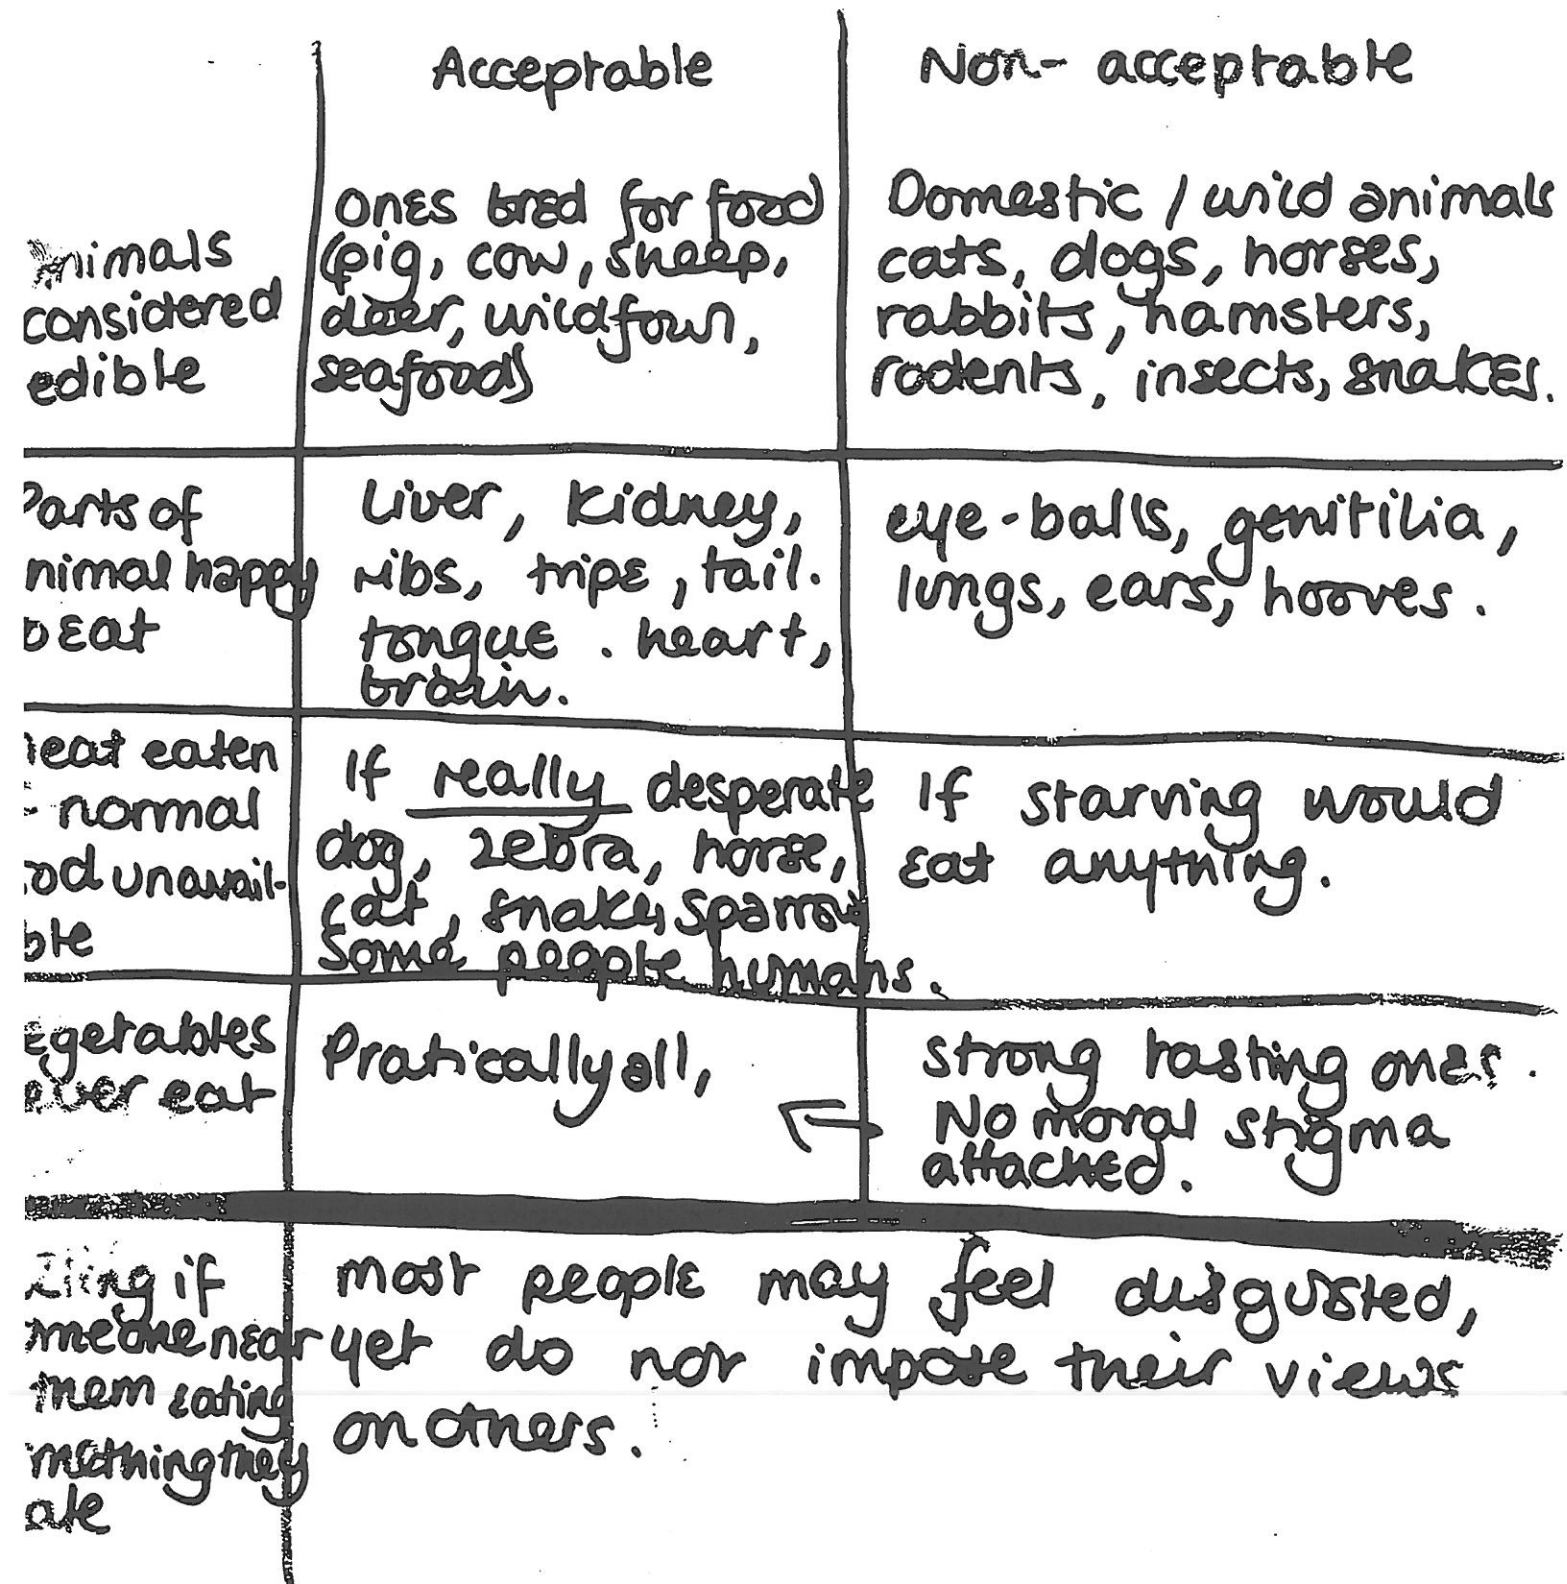 Acceptable
Non- acceptable
nimals
considered
edible
ones bred for food
(pig, cow, sheep,
deer, wildfown,
seafoods)
Domestic / wild animals
cats, dogs, horses,
rabbits, hamsters,
rodents, insects, snakes.
Parts of
nimal happy
o eat
Liver, kidney,
ribs, tripe, tail.
tongue . heart,
brain.
eye-balls, genitilia,
lungs, ears, hooves.
eat eaten
normal
ood unavail-
ble
If really desperate
dog, zebra, horse,
cat, snake, sparrow
Some people humans.
If starving would
eat anything.
egetables
ever eat
Pratically all,
strong tasting ones.
No moral stigma
attached.
ling if
meone near
them eating
mething they
ate
most people may feel disgusted,
yet do not impose their views
on others.